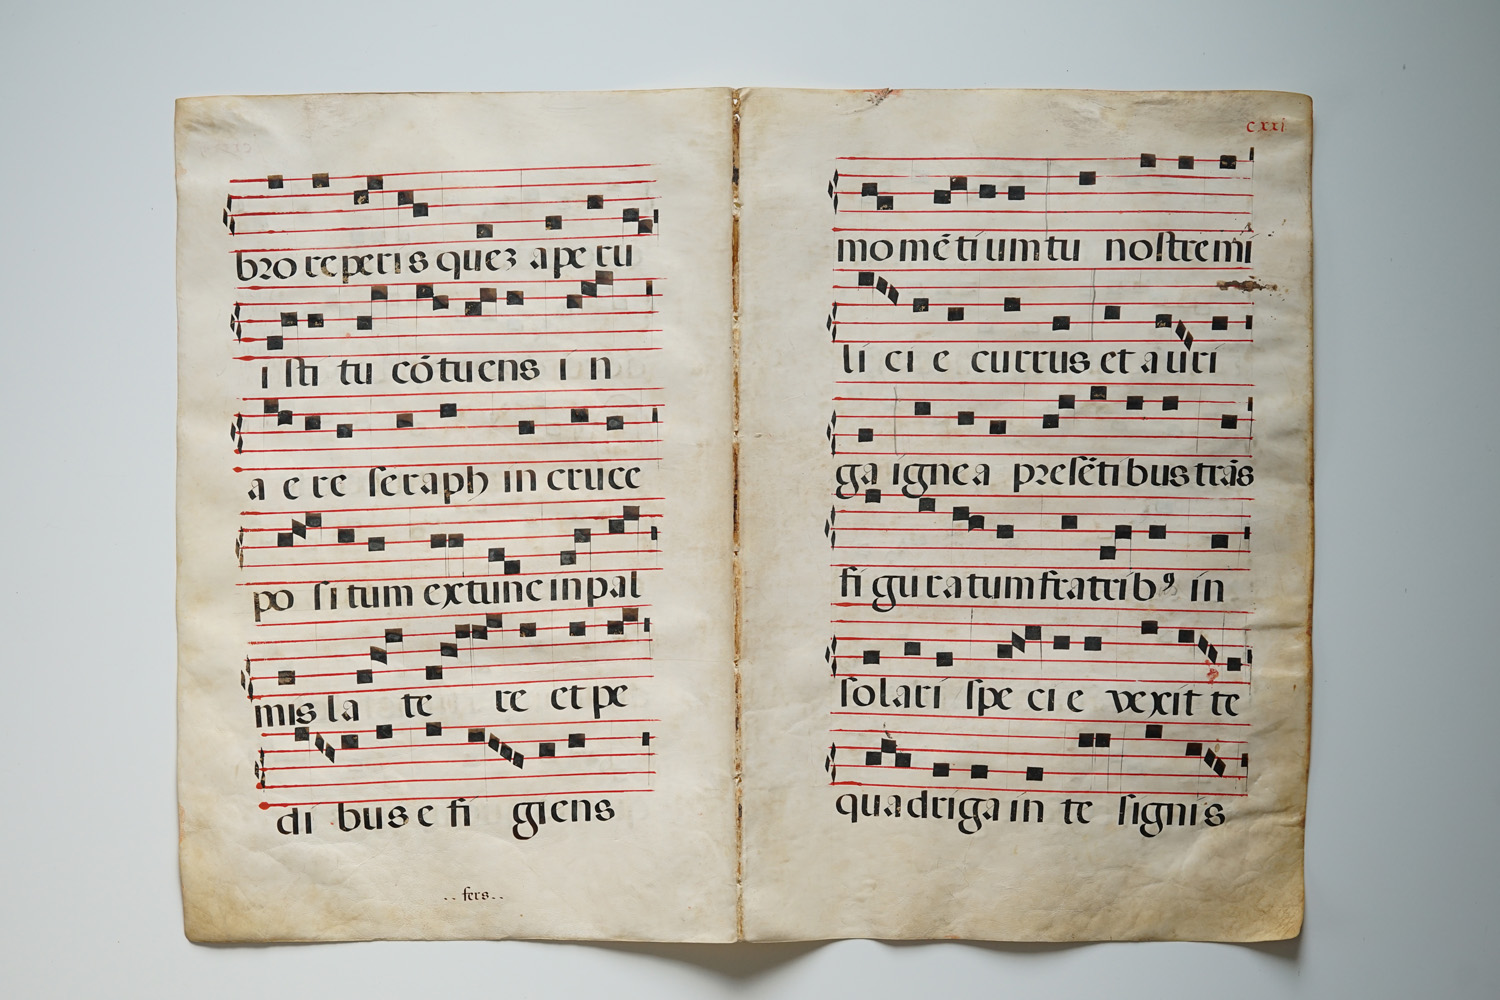 bro reperis quez aperu
isti tu cõtuens in
aere seraph in cruce
positum ex tunc in pal
mis latere et pe
dibus efigiens
..fers..
cxxi
momẽtium tu nostre mi
licie currus et auri
ga ignea presẽtibus trãs
figuratum fratribꝰ in
solari specie vexit te
quadriga in te signis